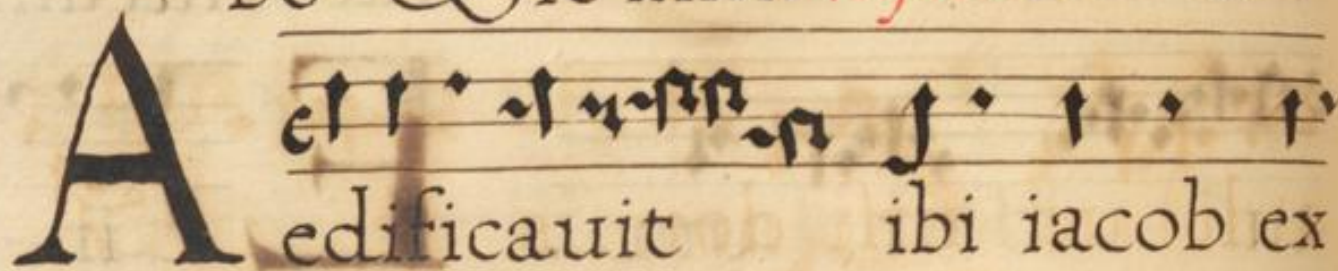 Aedificauit ibi iacob ex